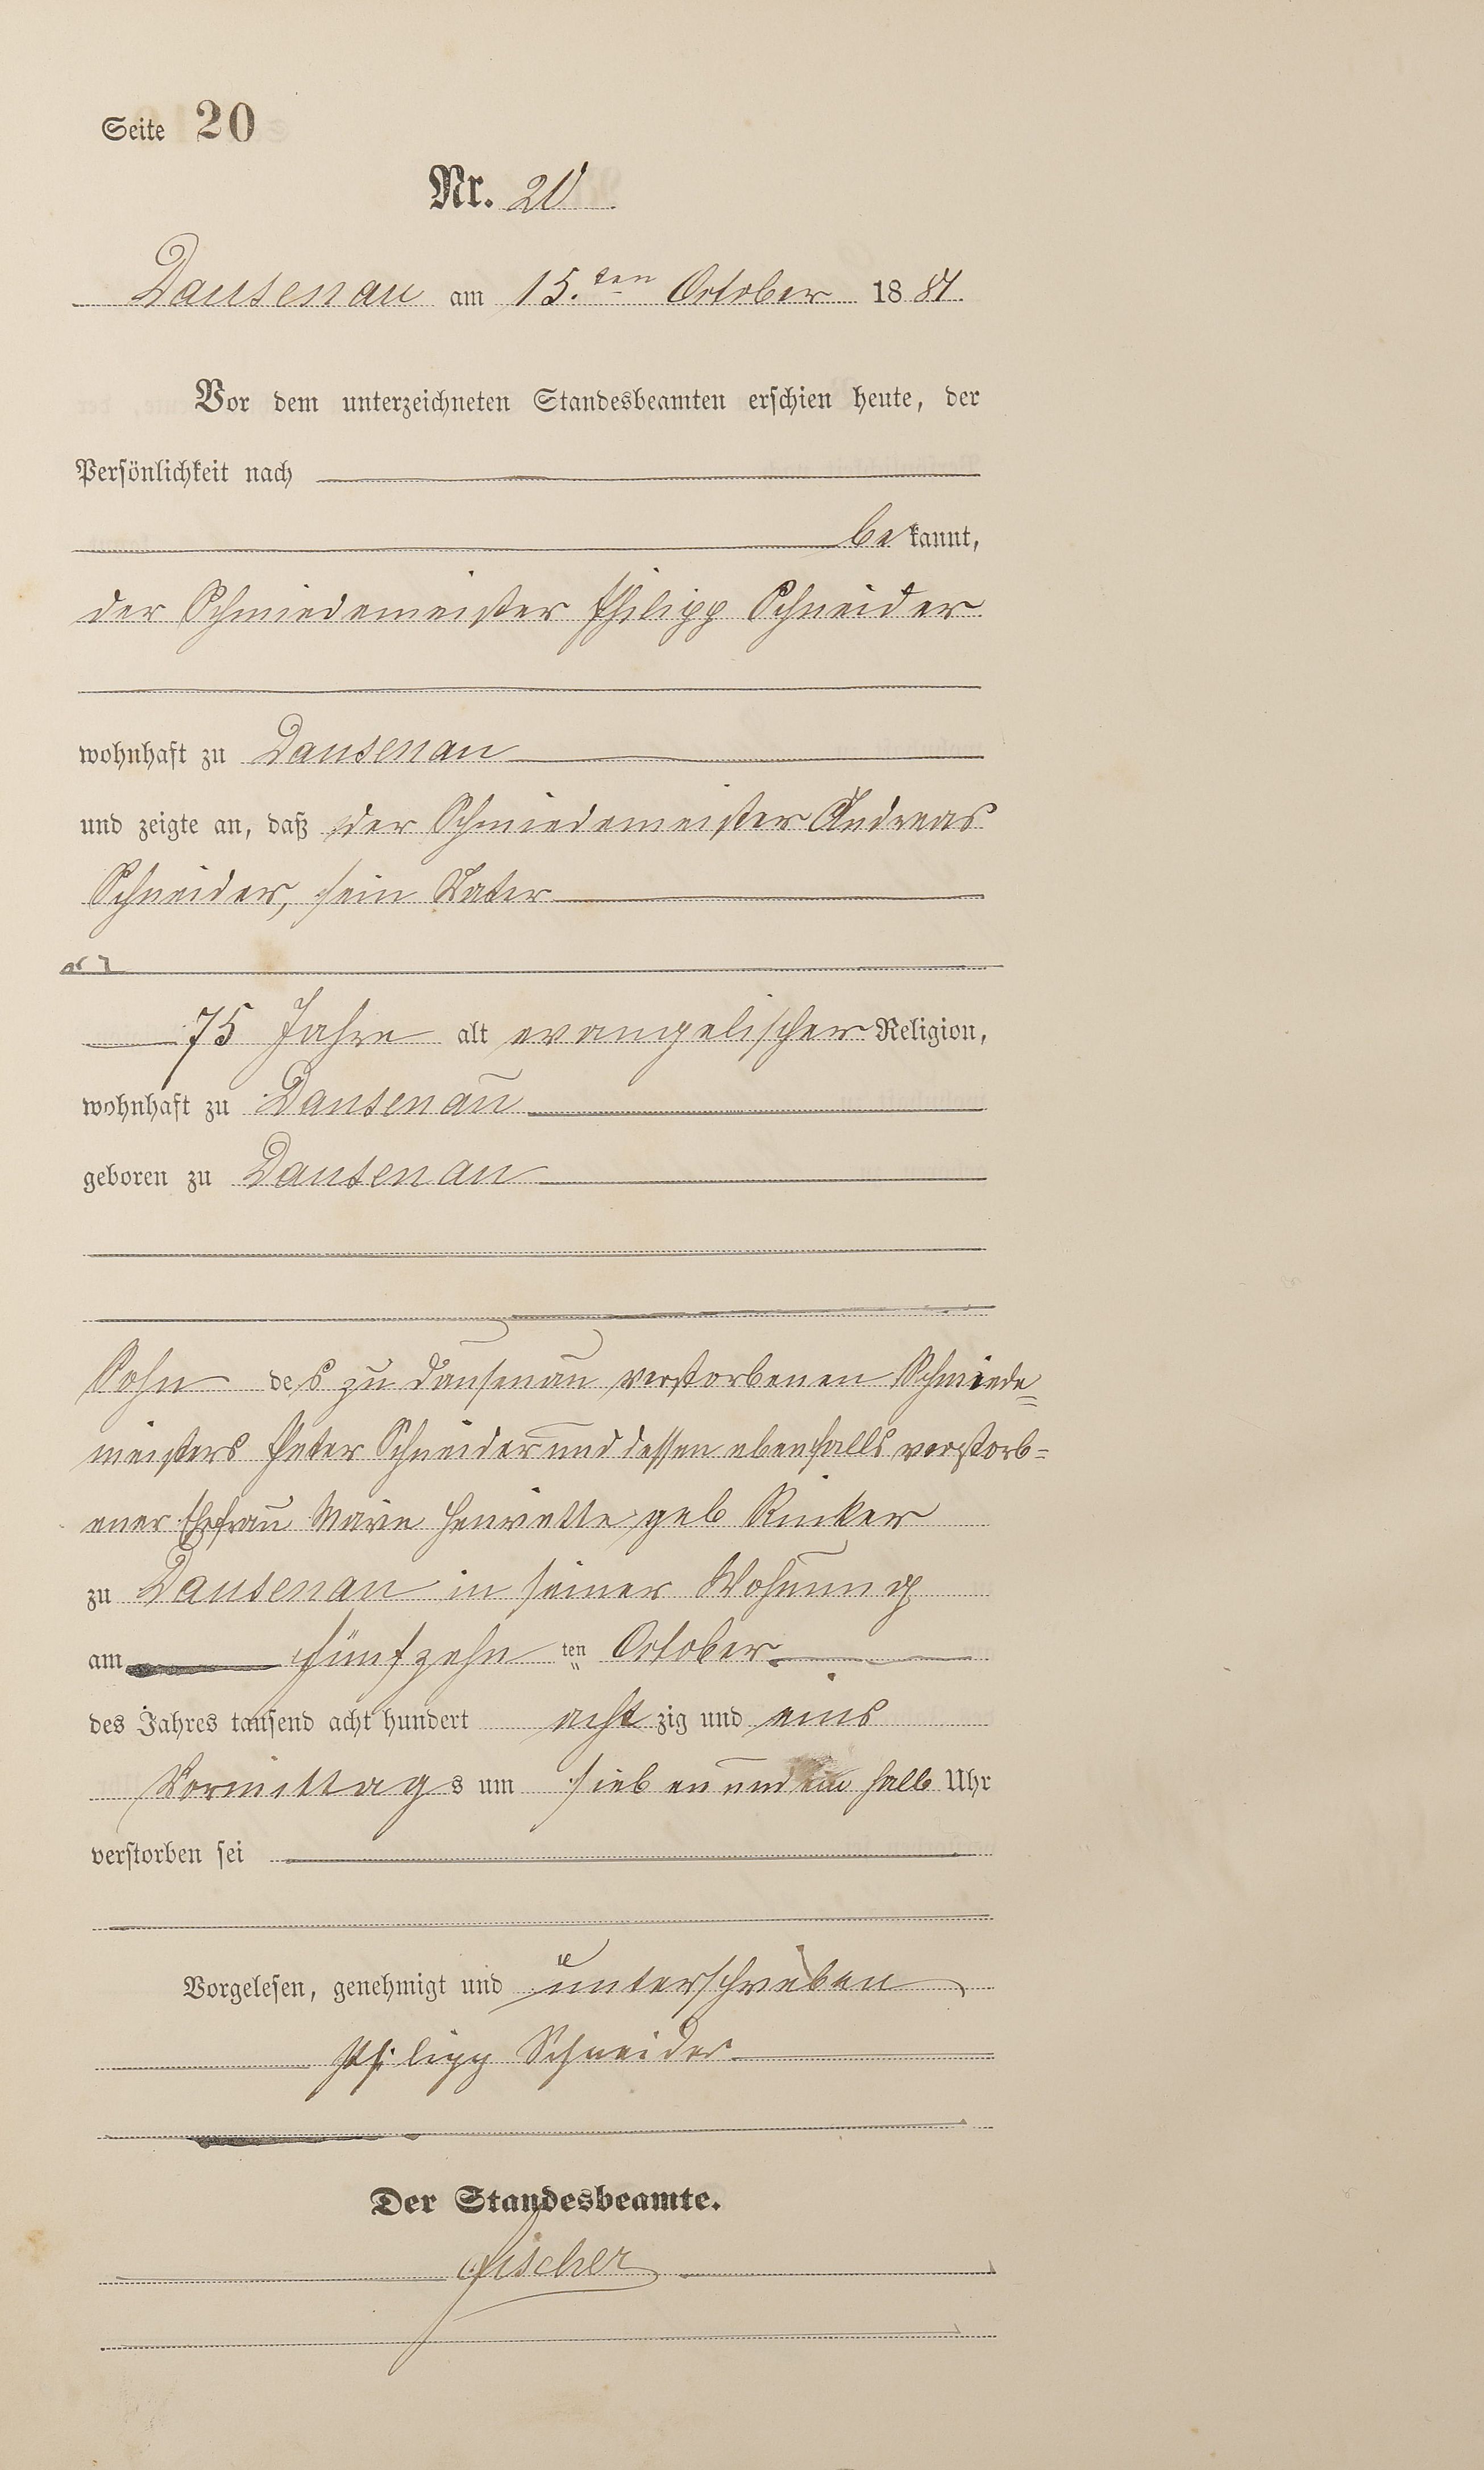 Seite 20
Nr. 20
Dausenau am 15.ten October 1881.
Vor dem unterzeichneten Standesbeamten erschien heute, der
Persönlichkeit nach
bekannt,
der Schmiedemeister Philipp Schneider
wohnhaft zu Dausenau
und zeigte an, daß der Schmiedemeister Andreas
Schneider, sein Vater
75 Jahre alt evangelischer Religion,
wohnhaft zu Dausenau
geboren zu Dausenau
Sohn des zu Dausenau verstorbenen Schmiede=
meisters Peter Schneider und dessen ebenfalls verstorb=
ener Ehefrau Marie Henriette geb Rinker
zu Dausenau in seiner Wohnung
am fünfzehn ten October
des Jahres tausend acht hundert acht zig und eins
Vormittags um sieben und ein halb Uhr
verstorben sei
Vorgelesen, genehmigt und unterschrieben
Philipp Schneider
Der Standesbeamte.
Fischer